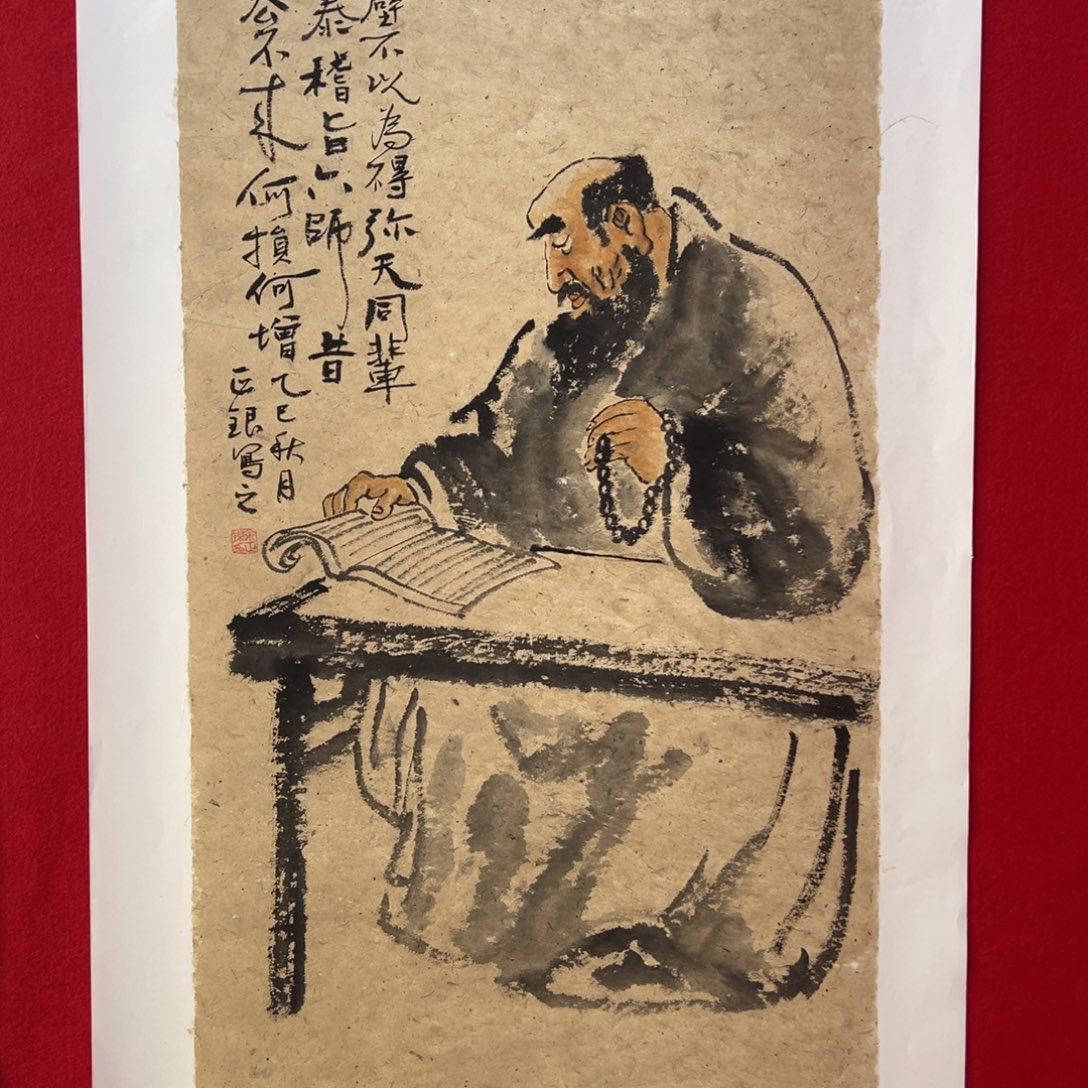 不以為得弥天同輩
泰稽旨六師昔
不来何損何增
乙巳秋月
正銀寫之